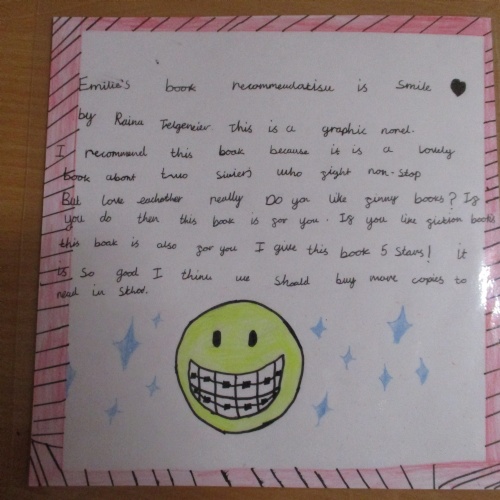 Emilie's book recommendation is Smile
by Raina Telgemeier. This is a graphic novel.
I recommend this book because it is a lovely
book about two sisters who fight non-stop
But love eachother really Do you like funny books? If
you do then this book is for you. If you like fiction books
this book is also for you I give this book 5 Stars! it
is so good I think we should buy more copies to
read in